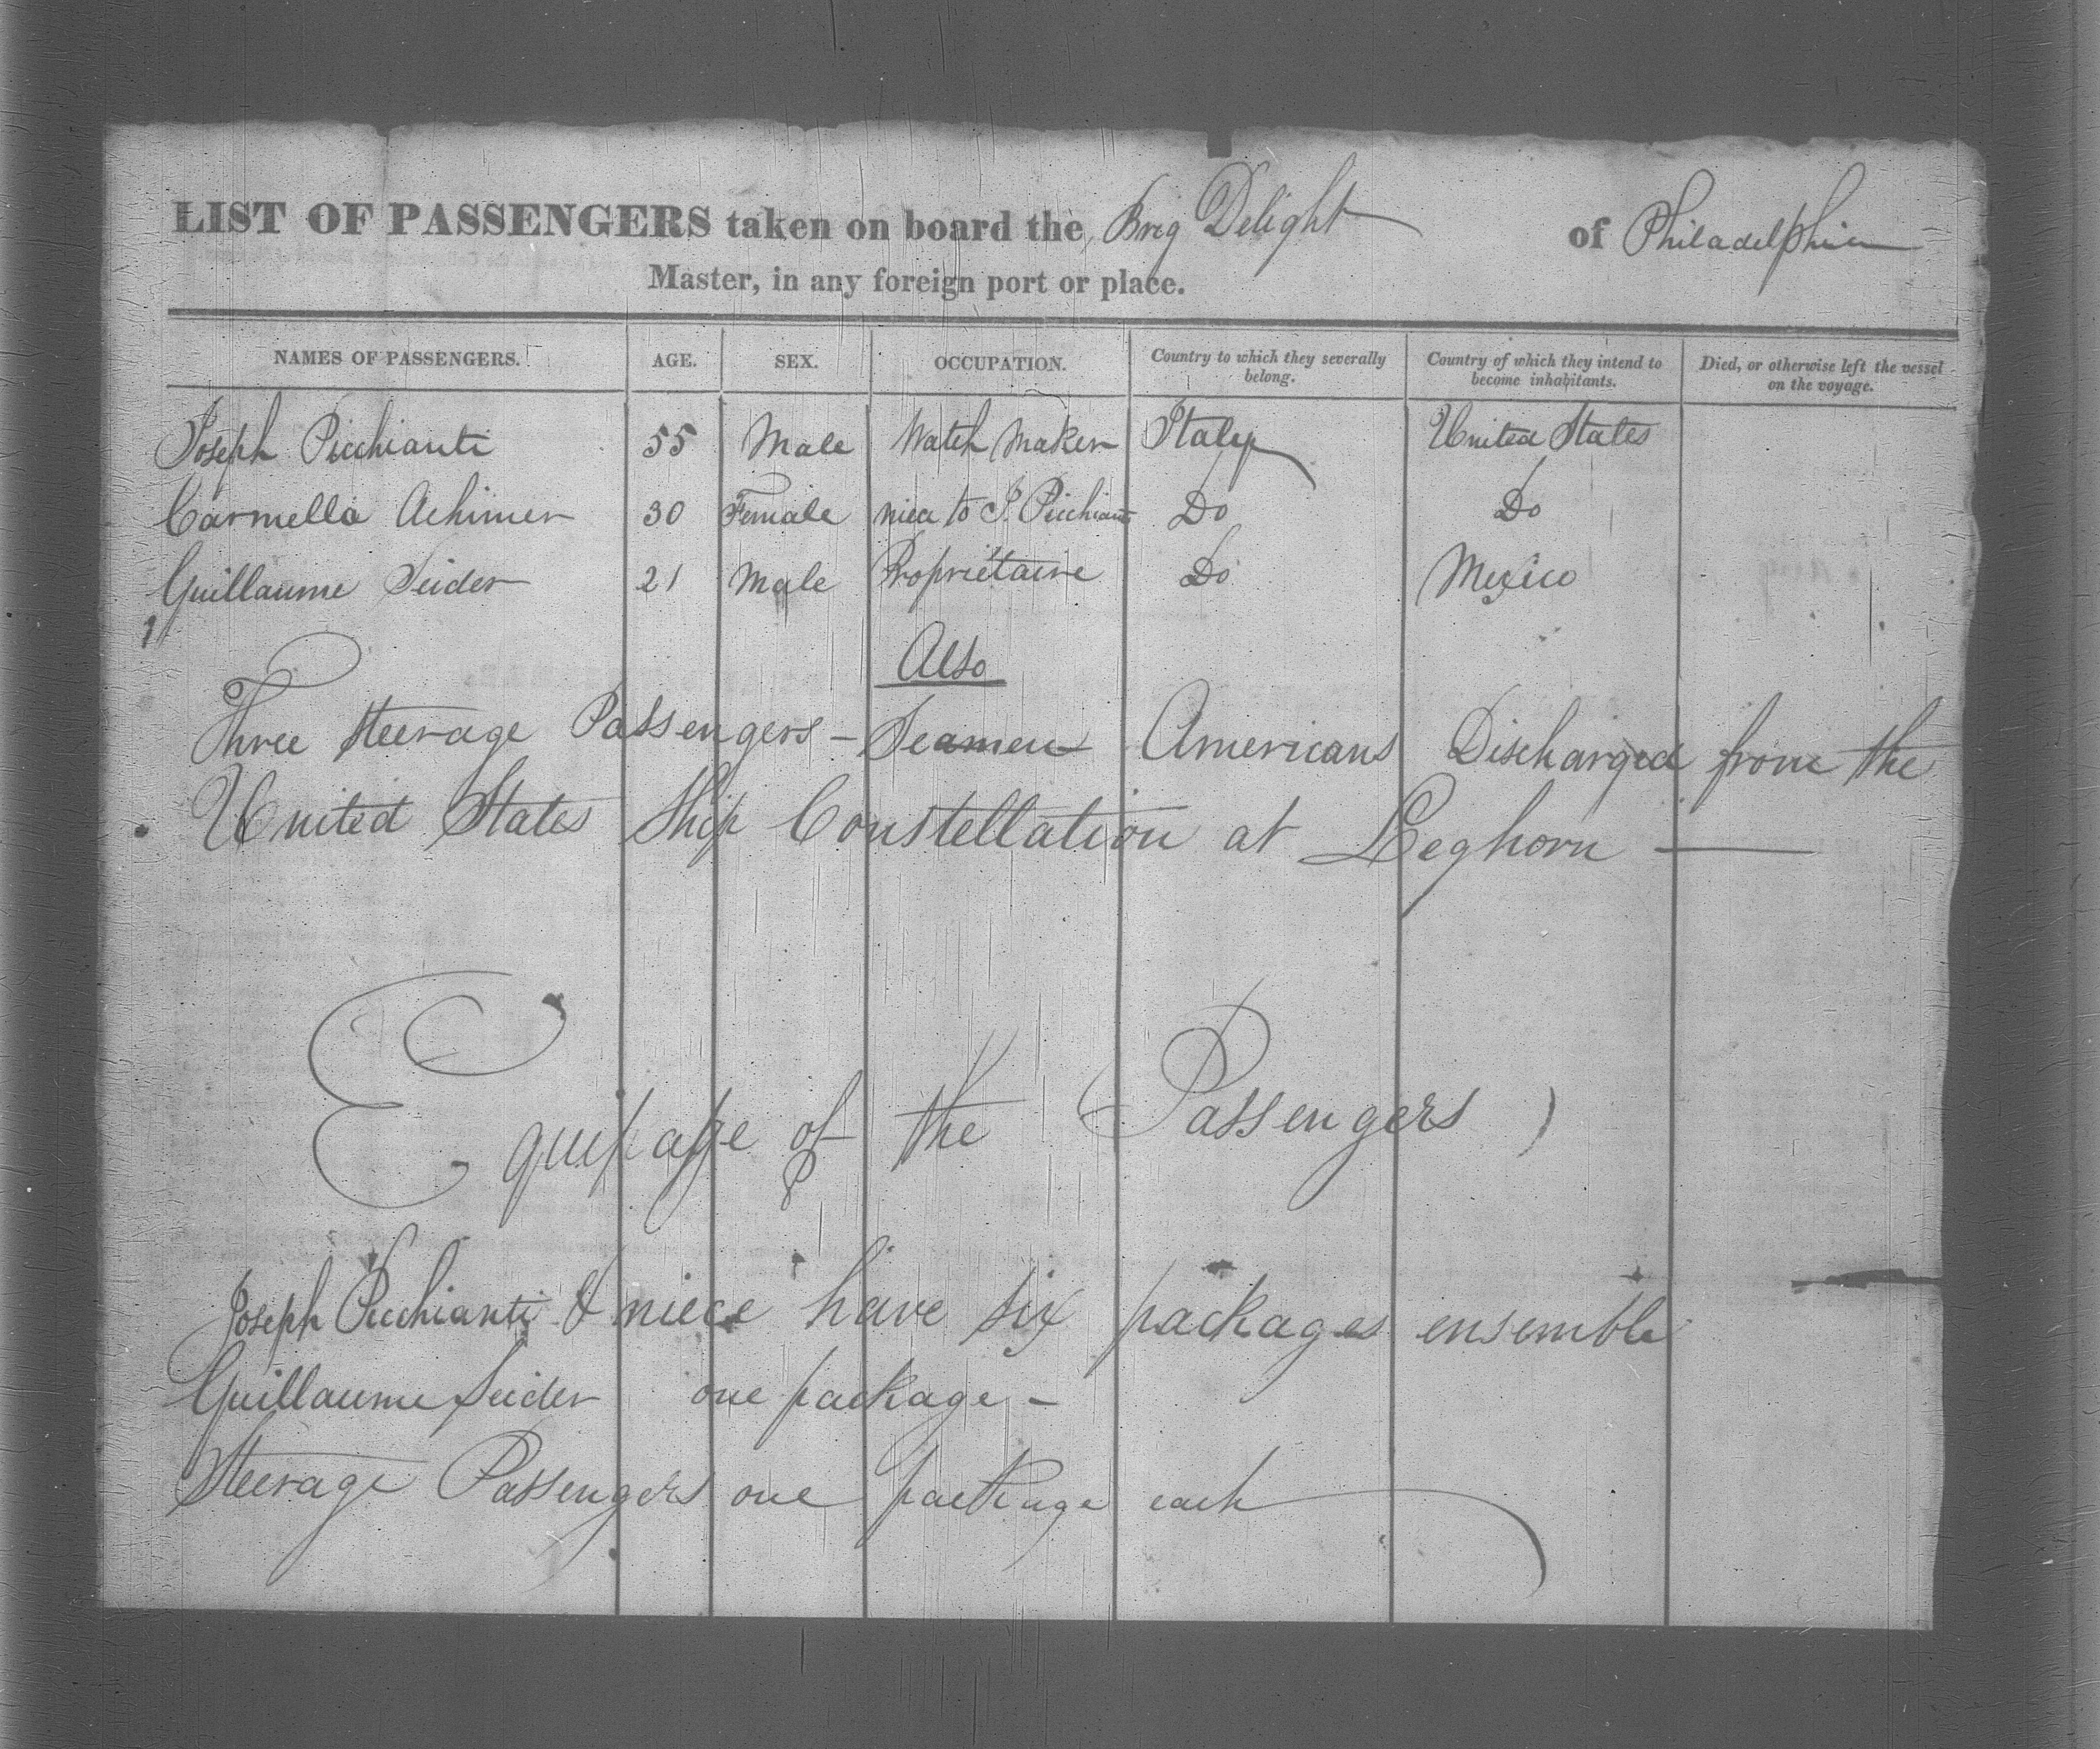 LIST OF PASSENGERS taken on board the Brig Delight of Philadelphia
Master, in any foreign port or place.
NAMES OF PASSENGERS. AGE. SEX. OCCUPATION. Country to which they severally belong. Country of which they intend to become inhabitants. Died, or otherwise left the vessel on the voyage.
Joseph Picchianti 55 Male Watch Maker Italy United States
Carmella Achimer 30 Female niece to J. Picchianti Do Do
Guillaume Seider 21 Male Proprietaire Do Mexico
Also
Three Steerage Passengers - Seamen Americans Discharged from the
United States Ship Constellation at Leghorn —
Equipage of the (Passengers)
Joseph Picchianti & niece have six packages ensemble
Guillaume Seider one package -
Steerage Passengers one package each